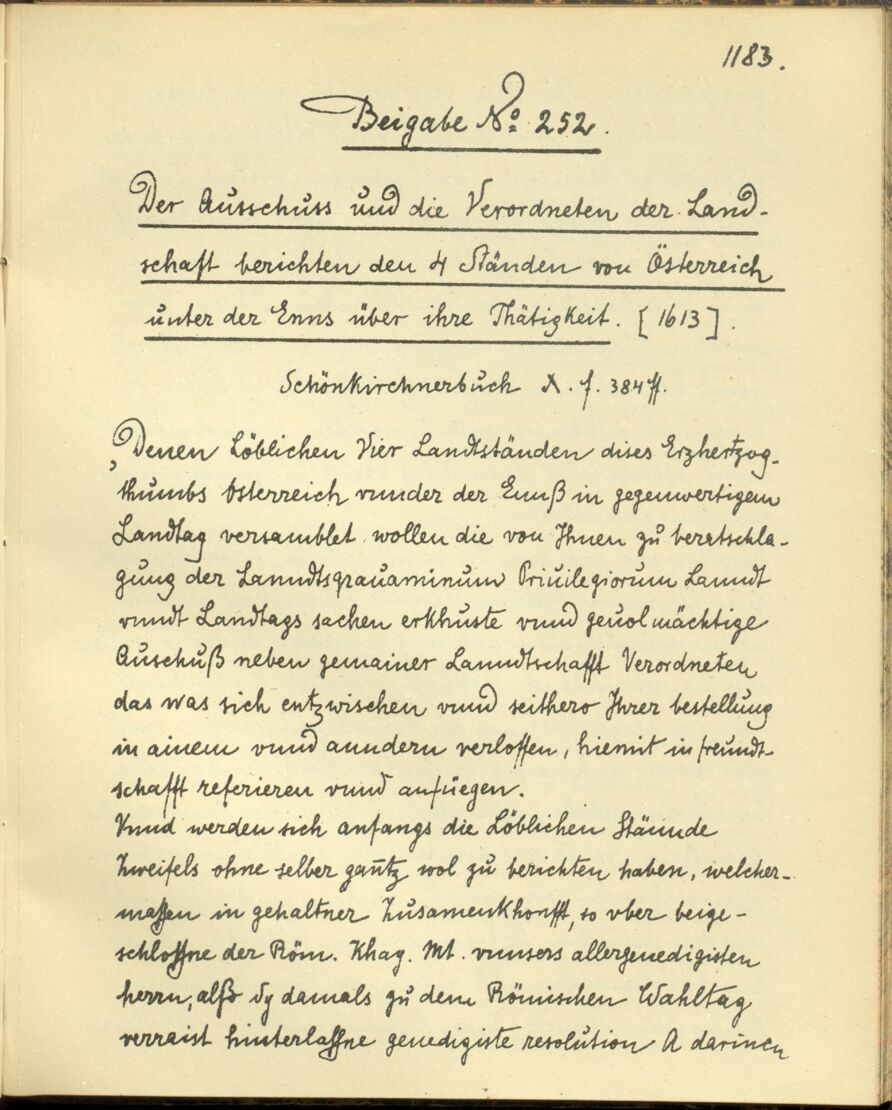 1183.
Beigabe No. 252.
Der Ausschuss und die Verordneten der Land-
schaft berichten den 4 Ständen von Österreich
unter der Enns über ihre Thätigkeit. [1613].
Schönkirchnerbuch X. f. 384 ff.
„Denen Löblichen Vier Landtständen dises Erzhertzog-
thumbs Österreich vnnder der Ennß in gegenwertigem
Landtag versamblet wollen die von Ihnen zu beratschla-
gung der Lanndtsgrauaminum Priuilegiorum Lanndt
vnndt Landtags sachen erkhuste vnnd geuolmächtige
Auschuß neben gemainer Lanndtschafft Verordneten
das was sich entzwischen vnnd seithero Ihrer bestellung
in ainem vnnd anndern verloffen, hiemit in freundt-
schafft referieren vnnd anfüegen.
Vnnd werden sich anfangs die Löblichen Stännde
Zweifels ohne selber gantz wol zu berichten haben, welcher-
massen in gehaltner Zusamenkhonfft, so vber beige-
schlossne der Röm. Khay. Mt. vnnsers allergenedigisten
herrn, alß Sy damals zu dem Römischen Wahltag
verraist hinterlassne genedigiste resolution A darinen